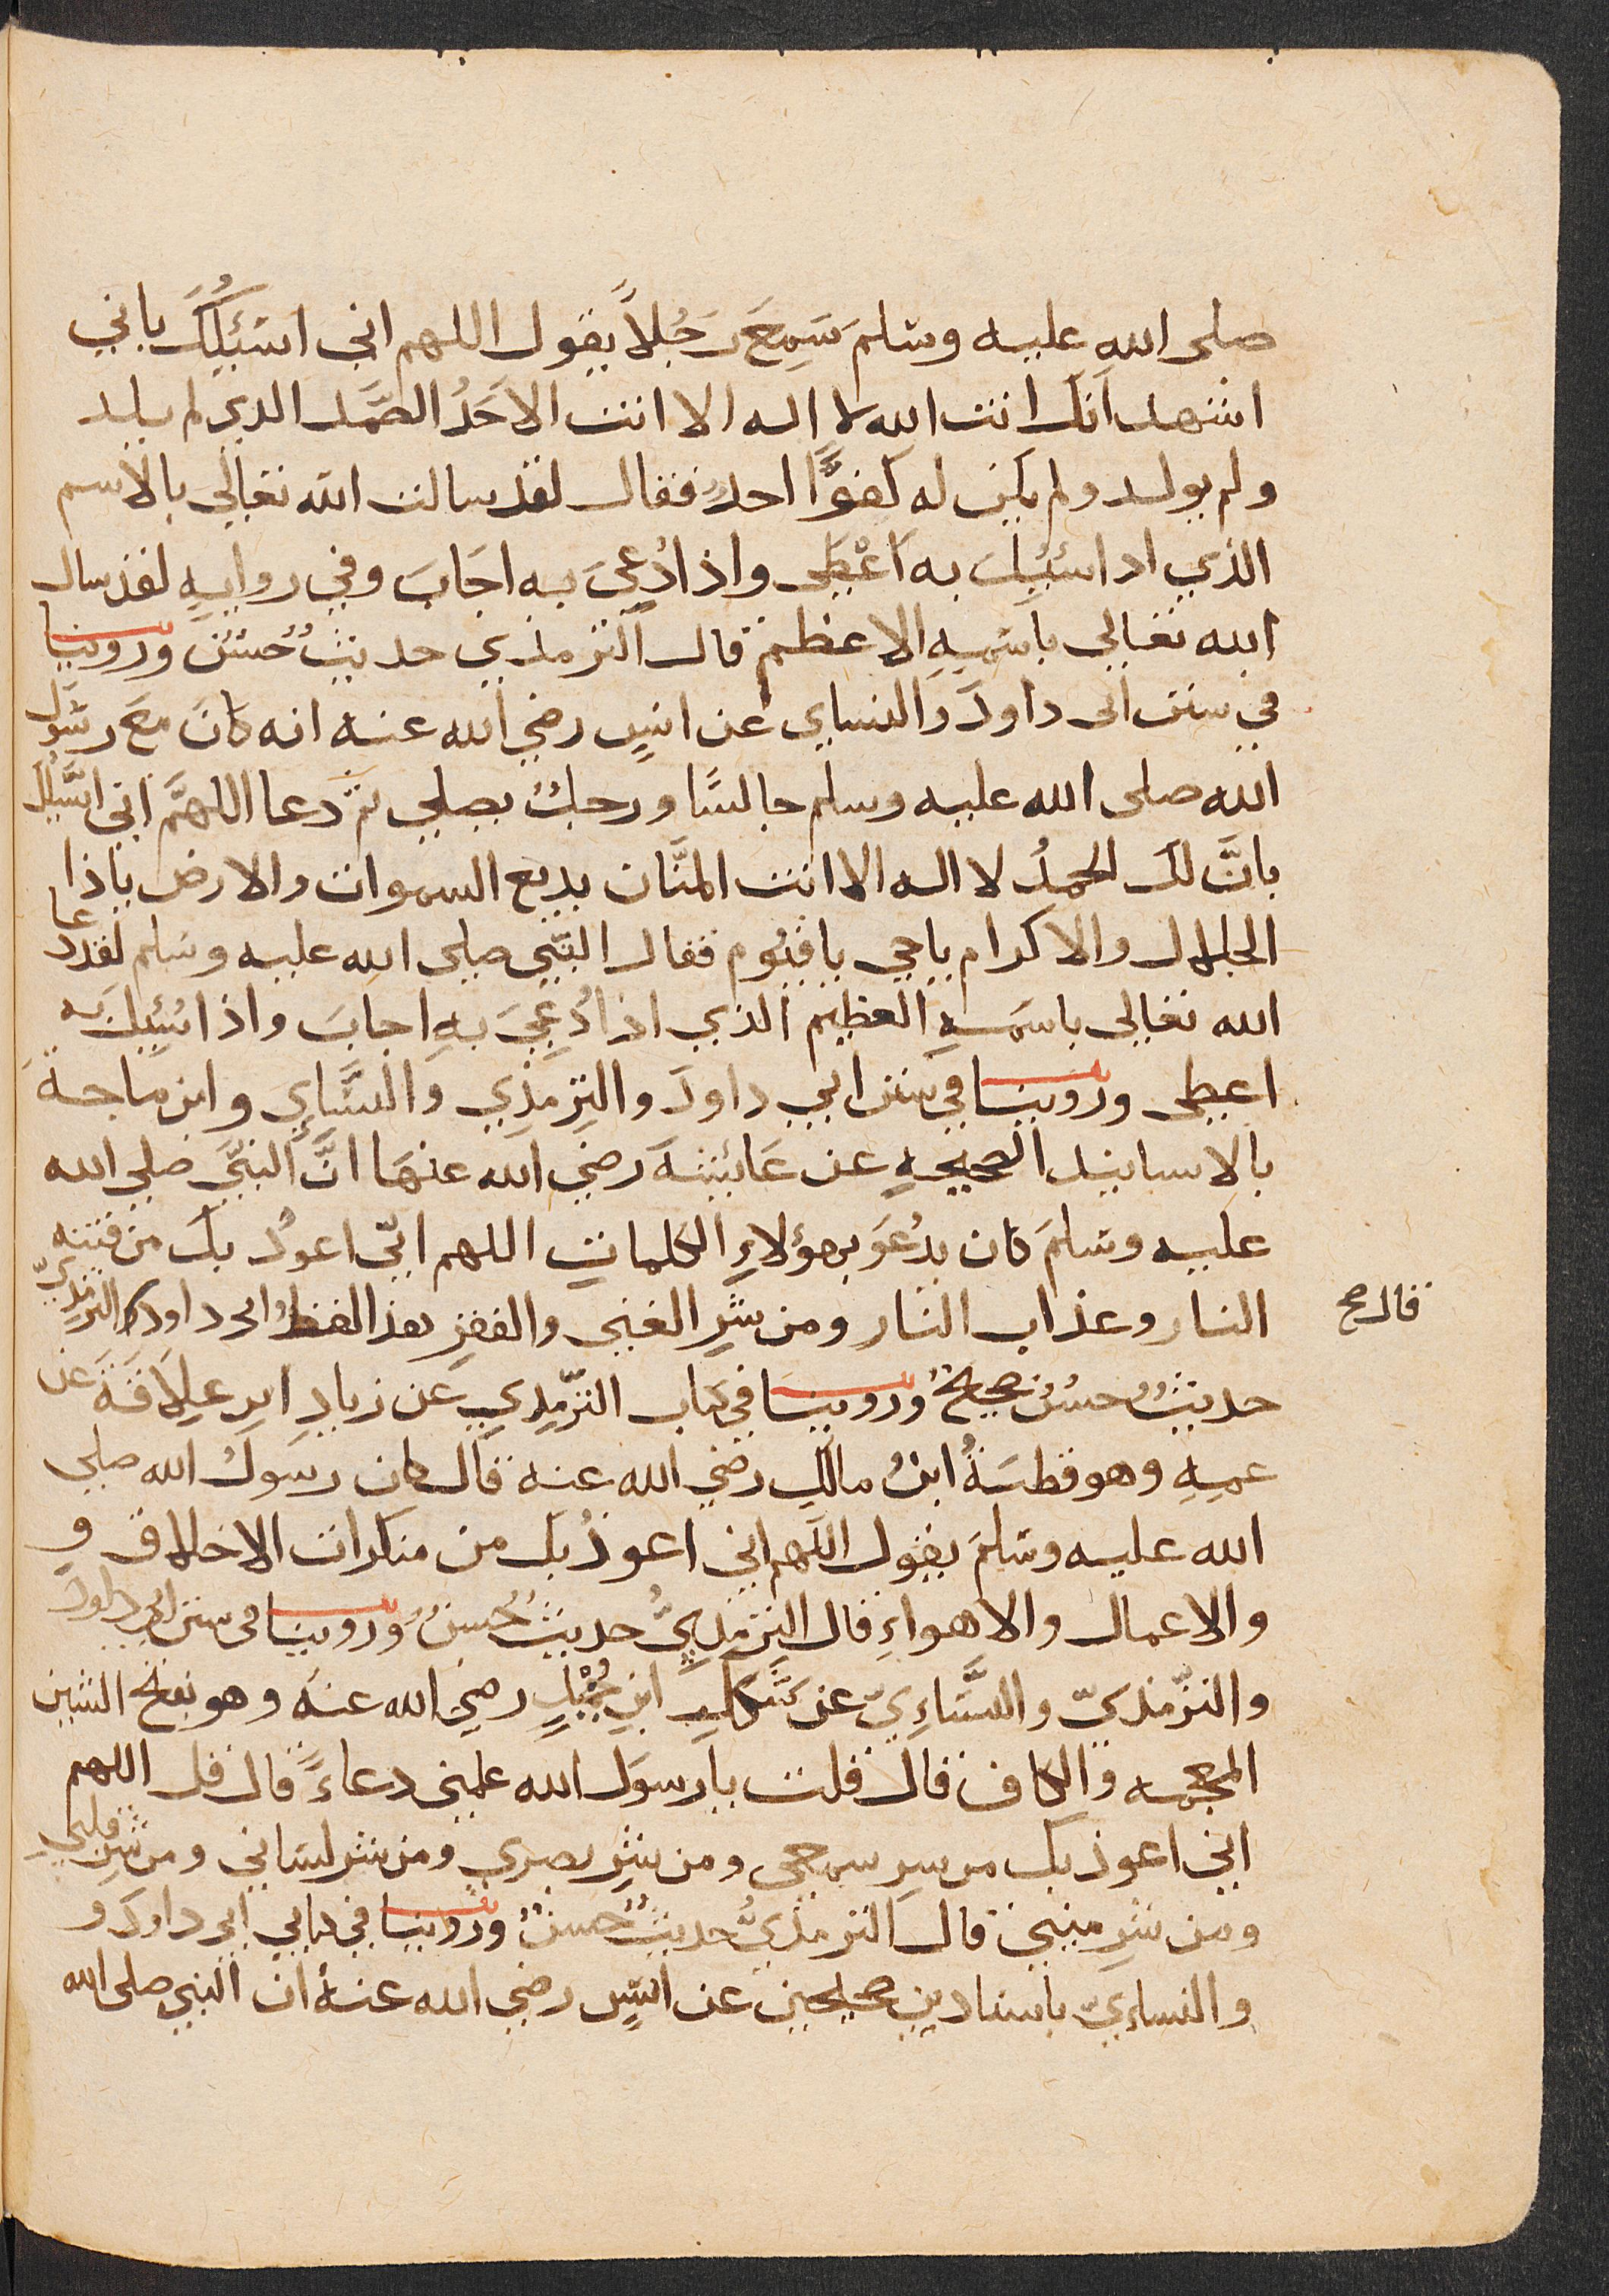 صلى الله عليه وسلم سَمِعَ رَجُلاً يقول اللهم اني اسئلُكَ باني
اشهد انك انت الله لا اله الا انت الاَحَدُ الصَّمَد الذي لم يلد
ولم يولد ولم يكن له كفوًا احدٌ فقال لقد سالت الله تعالى بالاسم
الذي اذا سُئِلَ به اَعْطَى واذا دُعِيَ به اجَابَ وفي روايةٍ لقد سال
الله تعالى باسْمِهِ الاعظم قال الترمذي حديثٌ حَسَنٌ وروينا
في سنن ابى داودَ والنساى عن انسٍ رضي الله عنه انه كانَ مَعَ رسُول
الله صلى الله عليه وسلم جالسًا ورجلٌ يصلي ثم دعا اللهمَّ اني اسْئَلُكَ
بانَّ لكَ الحمدُ لا اله الا انت المنَّان بديع السموات والارض ياذا
الجلال والاكرام ياحى ياقيُّوم فقال النبي صلى الله عليه وسلم لقد دعا
الله تعالى باسمهِ العظيم الذي اذا دُعِيَ بهِ اجابَ واذا سُئِلَ به
اعطى وروينا في سنن ابي داودَ والتِرْمذِي والنَّسَاي وابن ماجةَ
بالاسانيد الصحيحهِ عن عَائِشَةَ رضي الله عنهَا انَّ النبيَّ صلى الله
عليه وسلمَ كان يدعُوَ بهؤلاءِ الكلماتِ اللهم انِّي اعوذُ بكَ من فتنه
النار وعذاب النار ومن شرِ الغنى والفقرِ هذا لفظُ ابى داود الترمذيّ
قال صح
حديثٌ حسنٌ صحيحٌ وروينَا في كتاب الترّمِذِي عن زيادِ ابنِ عِلاَقَةَ عن
عمِهِ وهو قطبَةُ ابنُ مالكٍ رضي الله عنه قال كان رسولُ الله صلى
الله عليه وسلمَ يقول اللهم اني اعوذُ بك من منكرات الاخلاق و
والاعمال والاهواءِ قال التِرْمذِيُّ حديثٌ حَسنٌ وروينا فى سنن ابى داودَ
والترّمذيّ والنَّسَاءِيّ عن شَكَلِ ابنِ حُمَيْدٍ رضي الله عنه وهو بفتح الشين
المعجمه والكاف قال قلت يا رسول الله علمني دعاءً قال قل اللهم
اني اعوذ بك من شر سمعى ومن شرِ بصري ومن شر لساني ومن شرِ قلبي
ومن شرِ منيي قال الترمذيُّ حديثٌ حسنٌ وروينا في كتابي ابى داودَ و
والنساءيّ باسنادين صحيحين عن انسٍ رضي الله عنهُ ان النبي صلى الله